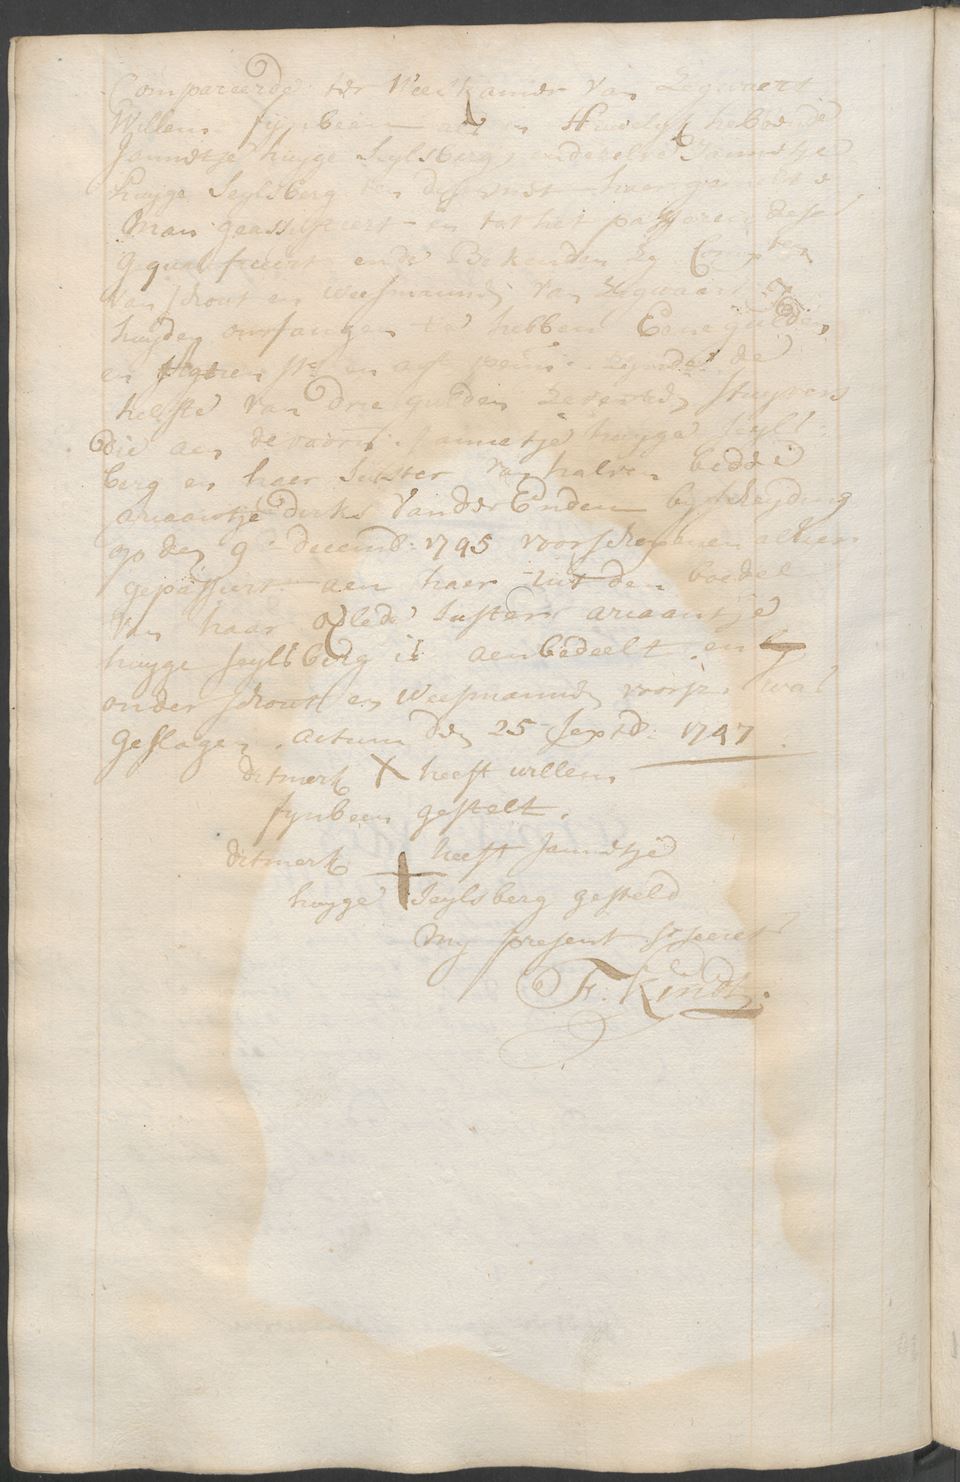 Compareerde ter Weeskamer van Zegwaert
Willem fijnbeen als in Huwelijk hebbende
Jannetje huijge Seijlsberg, ende deselve Jannetje
huijge Seijlsberg ten desen met haer
man geassisteert en tot het passeren deses
gequalificeert ende Bekenden
van schout en weesmannen van Zegwaert
huijden ontfangen te hebben Eene gulden
en en agt penn: zijnde de
helfte van drie gulden Zeventien stuijvers
die aen de voorn: Jannetje huijge Seijls
berg en haer suster van halven bedde
ariaantje dirks Van der Enden bij scheijding
op den 9 decemb: 1745 voor schepenen alhier
gepasseert aen haer uit den boedel
van haar suster ariaantje
huijge Seijlsberg is aenbedeelt en
onder schout en Weesmannen voorsz was
geslagen. actum den 25 septb: 1747
dit merk X heeft willem
fijnbeen gestelt.
dit merk + heeft Jannetje
huijge Seijlsberg gesteld
mij present secret
F: Kindt.